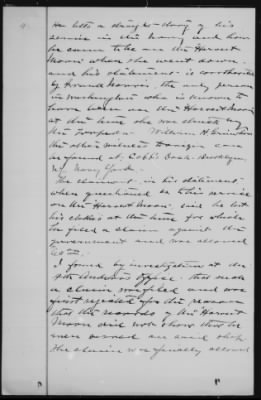 He tells a straight story of his
service in the Navy and how
he came to be on the Harvest
Moon when she went down
and his statement is corroborated
by Frank Morris, the only person
in Washington who is known to
have been on the Harvest Moon
at the time she was struck by
the torpedo. William H.
the other witness
found at Cobb Dock Brooklyn
N.Y. Navy Yard.
The claimant in his statement
when questioned as to his service
on the Harvest Moon, said he lost
his clothes at the time for which
he filed a claim against the
government and was allowed
$
I found by investigation at the
4th Auditors Office that such
a claim was filed and was
first rejected for the reason
that the records of the Harvest
Moon did not show that he
ever served on said ship.
The claim was finally allowed